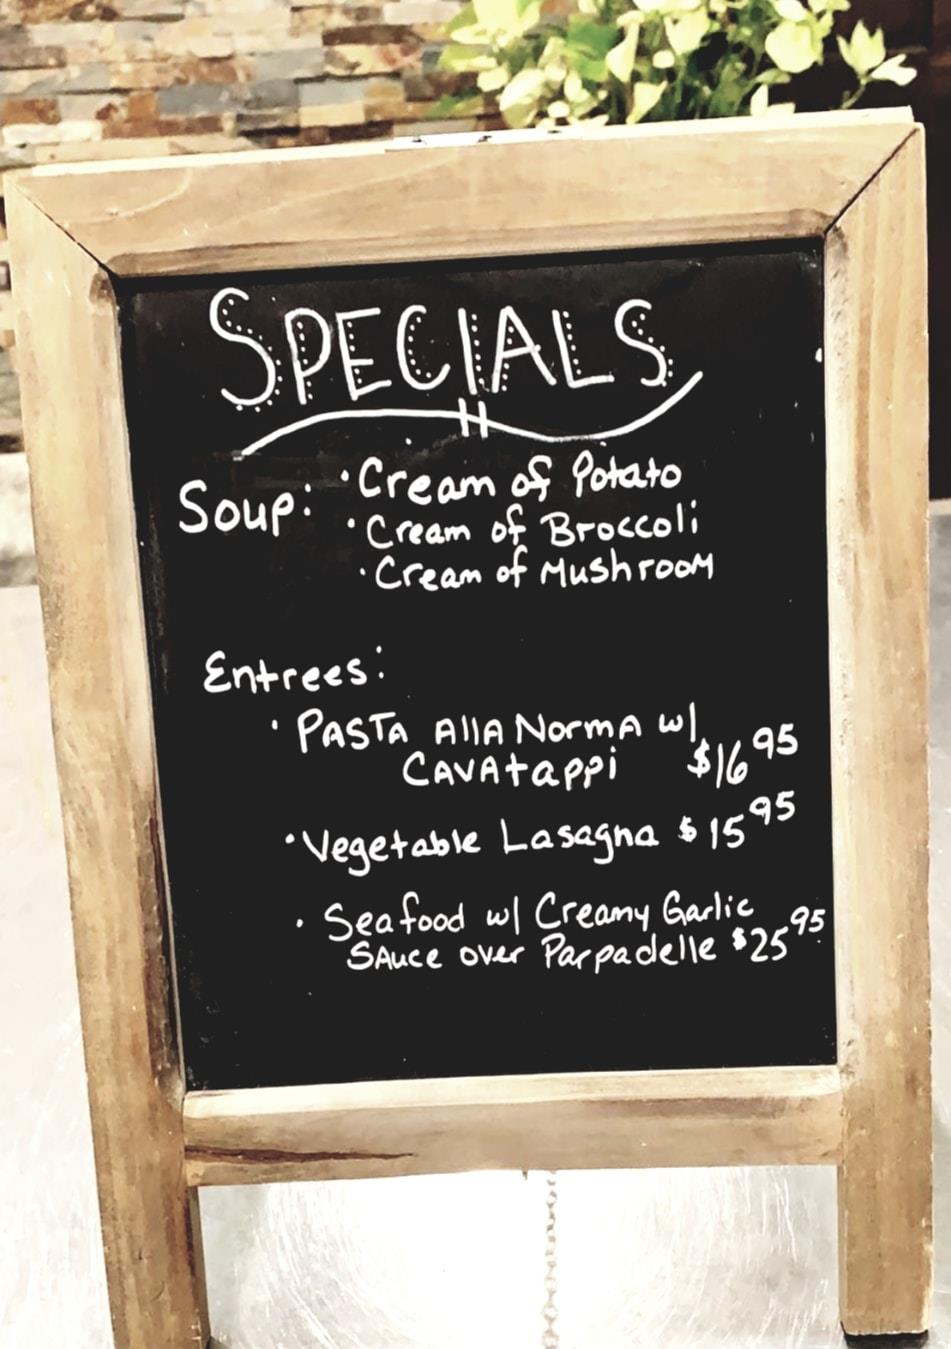 SPECIALS
Soup: · Cream of Potato
· Cream of Broccoli
· Cream of Mushroom
Entrees:
· PASTA Alla Norma w/
CAVAtappi $16 95
· Vegetable Lasagna $15 95
· Seafood w/ Creamy Garlic
Sauce over Parpadelle $25 95